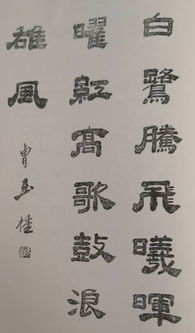 白鷺騰飛曦暉
曜紅高歌鼓浪
雄風